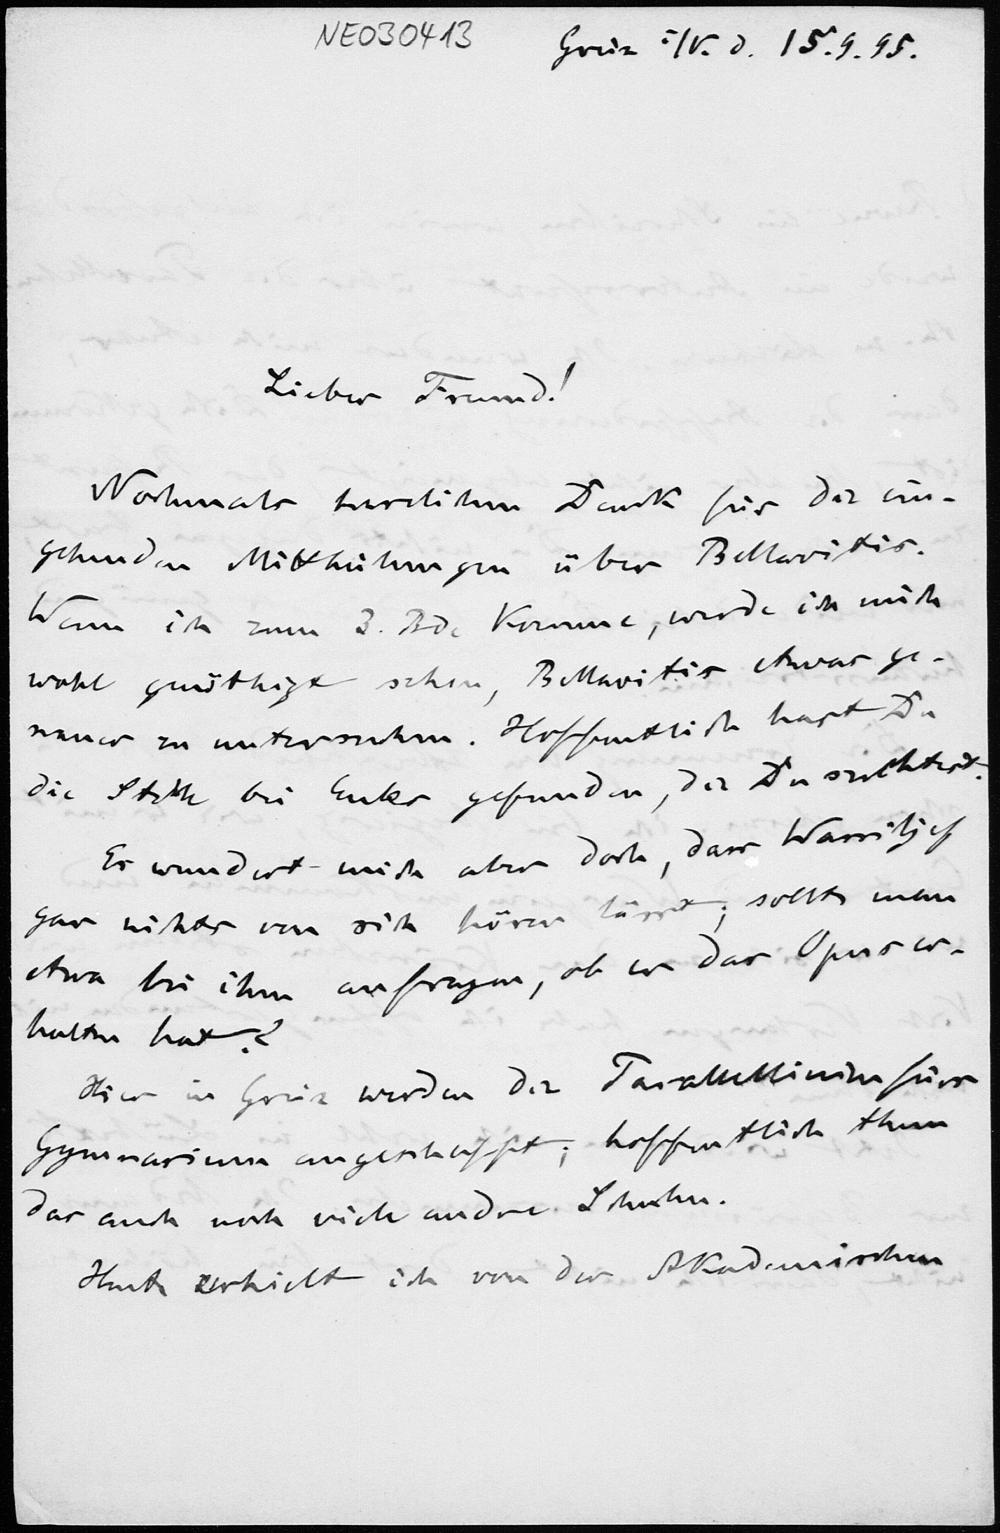 NE030413
Greiz i/V. d. 15.9.95.
Lieber Freund!
Nochmals herzlichen Dank für die ein-
gehenden Mittheilungen über Bellavitis.
Wenn ich zum 3. Bde komme, werde ich mich
wohl genöthigt sehen, Bellavitis etwas ge-
nauer zu untersuchen. Hoffentlich hast Du
die Stelle bei Euler gefunden, die Du suchtest.
Es wundert mich aber doch, dass Wassiljef
gar nichts von sich hören lässt; sollte man
etwa bei ihm anfragen, ob er das Opus er-
halten hat?
Hier in Greiz werden die Parallellinien fürs
Gymnasium angeschafft; hoffentlich thun
das auch noch viele andre Schulen.
Heute erhielt ich von der Akademischen